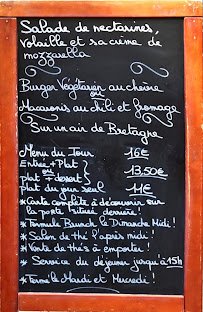 Salade de nectarines,
volaille et sa crème de
mozzarella
Burger Végétarien au chèvre
ou
Macarons au chili et fromage
Sur un air de Bretagne
Menu du Jour 16€
Entrée + Plat
ou
plat + dessert 13,50€
plat du jour seul 11€
* Carte complète à découvrir sur
la porte située derrière !
* Formule Brunch le Dimanche Midi !
* Salon de thé l'après midi !
* Vente de thés à emporter !
* Service du déjeuner jusqu'à 15h
* Fermé le Mardi et Mercredi !